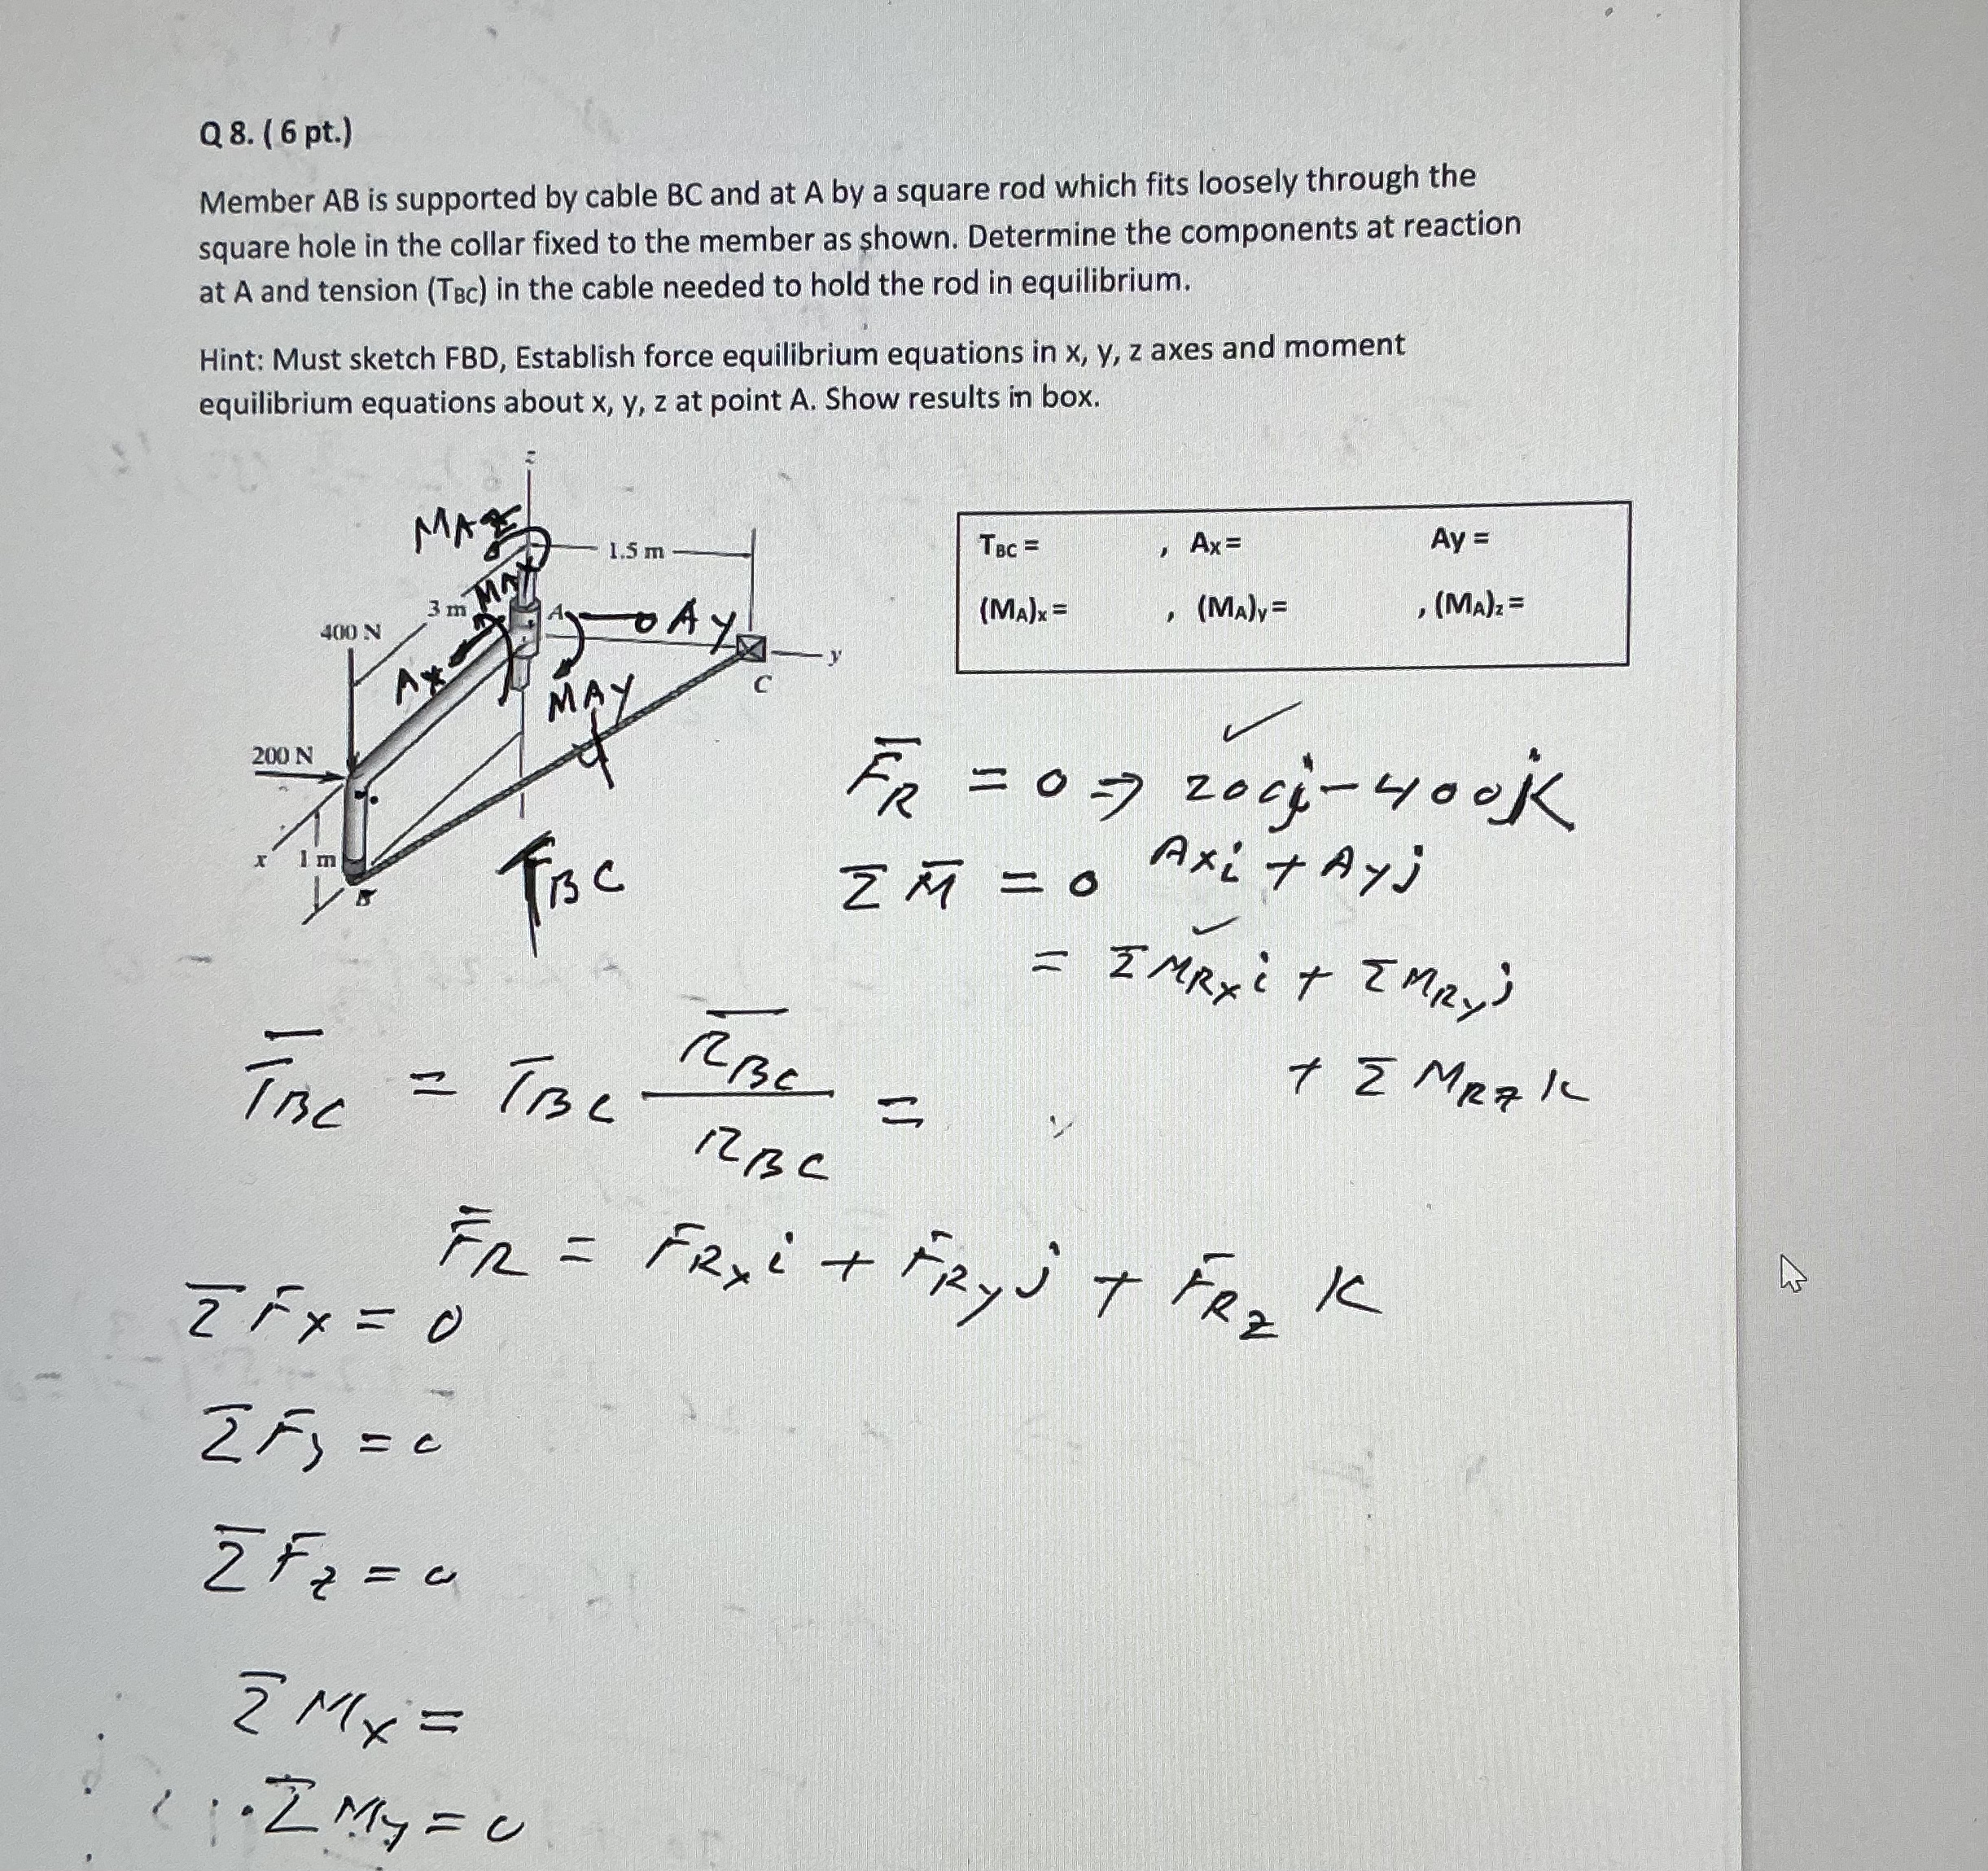 Q 8. ( 6 pt.)
Member AB is supported by cable BC and at A by a square rod which fits loosely through the
square hole in the collar fixed to the member as shown. Determine the components at reaction
at A and tension (TBC) in the cable needed to hold the rod in equilibrium.
Hint: Must sketch FBD, Establish force equilibrium equations in x, y, z axes and moment
equilibrium equations about x, y, z at point A. Show results in box.
z
MAZ
1.5 m
MAX
3 m
A
AY
400 N
y
AX
C
MAY
200 N
x
1 m
B
FBC
TBC = , Ax = Ay =
(MA)x = , (MA)y = , (MA)z =
F̅R = 0 ⇒ 200j - 400K
Axi + Ayj
Σ M̅ = 0
= Σ MRx i + Σ MRy j
+ Σ MRz k
T̅BC = TBC R̅BC / RBC =
F̅R = FRx i + FRy j + FRz K
Σ Fx = 0
Σ Fy = 0
Σ Fz = 0
Σ Mx =
Σ My = 0